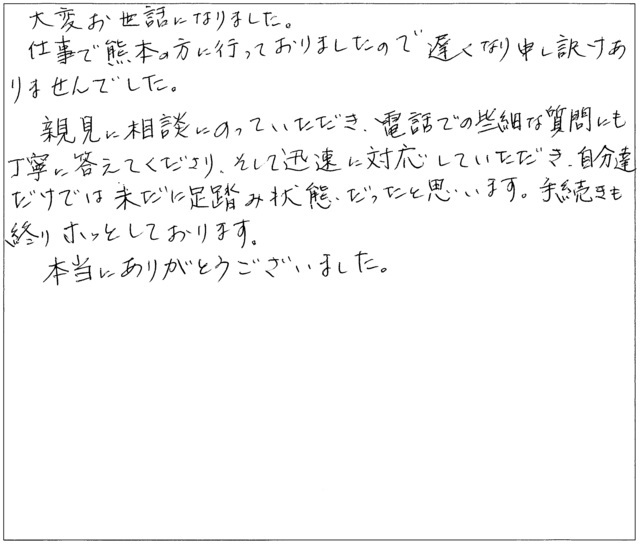 大変お世話になりました。
仕事で熊本の方に行っておりましたので遅くなり申し訳けあ
りませんでした。
親見に相談にのっていただき、電話での些細な質問にも
丁寧に答えてくださり、そして迅速に対応していただき、自分達
だけでは未だに足踏み状態だったと思います。手続きも
終りホッとしております。
本当にありがとうございました。